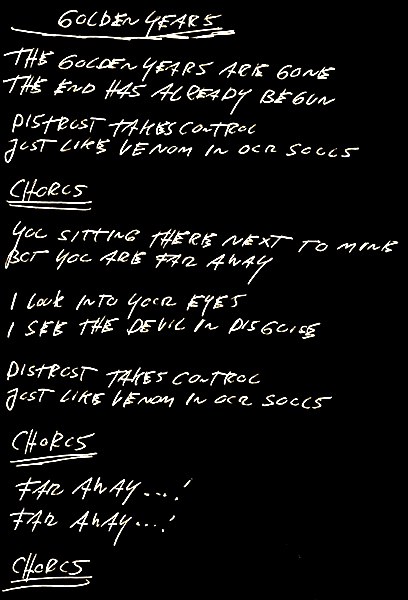 GOLDEN YEARS
THE GOLDEN YEARS ARE GONE
THE END HAS ALREADY BEGUN
DISTRUST TAKES CONTROL
JUST LIKE VENOM IN OUR SOULS
CHORUS
YOU SITTING THERE NEXT TO MINE
BUT YOU ARE FAR AWAY
I LOOK INTO YOUR EYES
I SEE THE DEVIL IN DISGUISE
DISTRUST TAKES CONTROL
JUST LIKE VENOM IN OUR SOULS
CHORUS
FAR AWAY....!
FAR AWAY....!
CHORUS